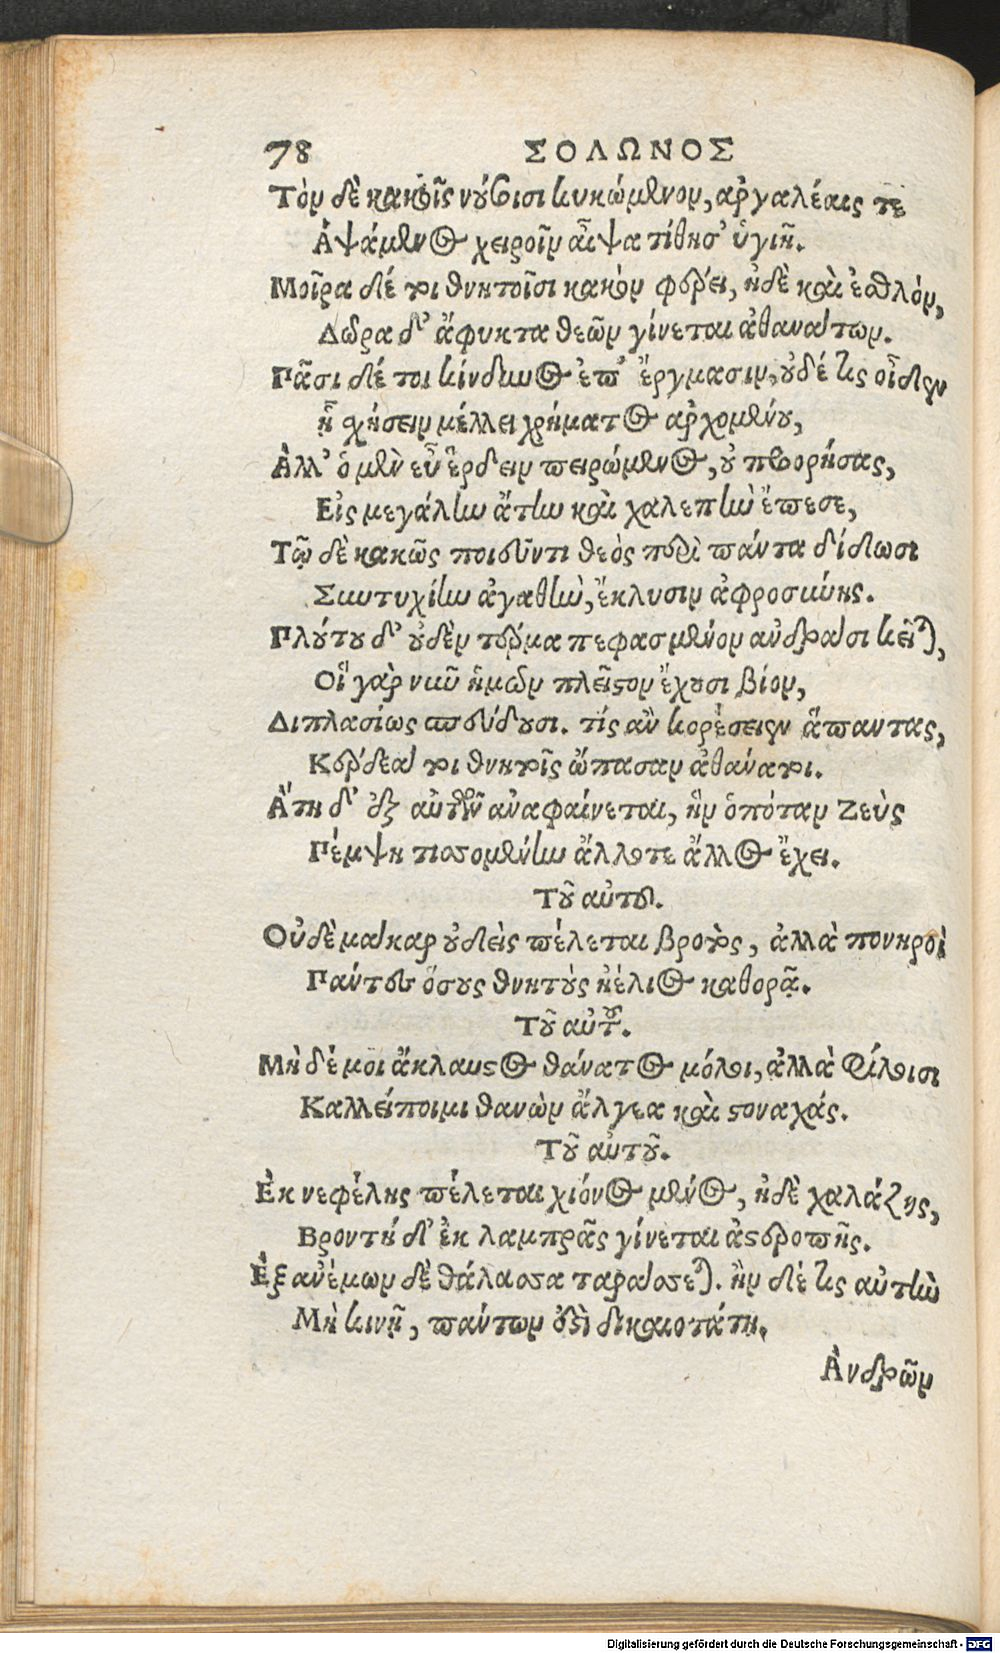 78 ΣΟΛΩΝΟΣ
Τὸν δὲ κακοῖς νούσοισι κυκώμενον, ἀργαλέαις τε
Ἁψάμενος χειροῖν αἶψα τίθησ' ὑγιῆ.
Μοῖρα δέ τοι θνητοῖσι κακὸν φέρει, ἠδὲ καὶ ἐσθλὸν,
Δῶρα δ' ἄφυκτα θεῶν γίνεται ἀθανάτων.
Πᾶσι δέ τοι κίνδυνος ἐπ' ἔργμασιν, οὐδέ τις οἶδεν
ᾗ σχήσειν μέλλει χρήματος ἀρχομένου,
Ἀλλ' ὁ μὲν εὖ ἕρδειν πειρώμενος, οὐ προνοήσας,
Εἰς μεγάλην ἄτην καὶ χαλεπὴν ἔπεσε,
Τῷ δὲ κακῶς ποιοῦντι θεὸς περὶ πάντα δίδωσι
Συντυχίην ἀγαθὴν, ἔκλυσιν ἀφροσύνης.
Πλούτου δ' οὐδὲν τέρμα πεφασμένον ἀνδράσι κεῖται,
Οἳ γὰρ νῦν ἡμῶν πλεῖστον ἔχουσι βίον,
Διπλασίως σπεύδουσι. τίς ἂν κορέσειεν ἅπαντας,
Κέρδεά τοι θνητοῖς ὤπασαν ἀθάνατοι.
Ἄτη δ' ἐξ αὐτῶν ἀναφαίνεται, ἣν ὁπόταν Ζεὺς
Πέμψῃ τισομένην ἄλλοτε ἄλλος ἔχει.
Τοῦ αὐτοῦ.
Οὐδὲ μάκαρ οὐδεὶς πέλεται βροτὸς, ἀλλὰ πονηροὶ
Πάντες ὅσους θνητοὺς ἠέλιος καθορᾷ.
Τοῦ αὐτοῦ.
Μὴ δέ μοι ἄκλαυστος θάνατος μόλοι, ἀλλὰ φίλοισι
Καλλείποιμι θανὼν ἄλγεα καὶ στοναχάς.
Τοῦ αὐτοῦ.
Ἐκ νεφέλης πέλεται χιόνος μένος, ἠδὲ χαλάζης,
Βροντὴ δ' ἐκ λαμπρᾶς γίνεται ἀστεροπῆς.
Ἐξ ἀνέμων δὲ θάλασσα ταράσσεται. ἢν δέ τις αὐτὴν
Μὴ κινῇ, πάντων ἐστὶ δικαιοτάτη.
Ἀνδρῶν
Digitalisierung gefördert durch die Deutsche Forschungsgemeinschaft - DFG